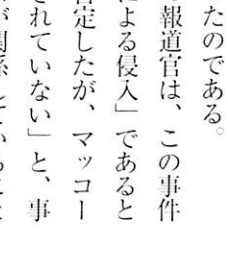 たのである。
報道官は、この事件
による侵入」であると
否定したが、マッコー
されていない」と、事
が関係しているこ